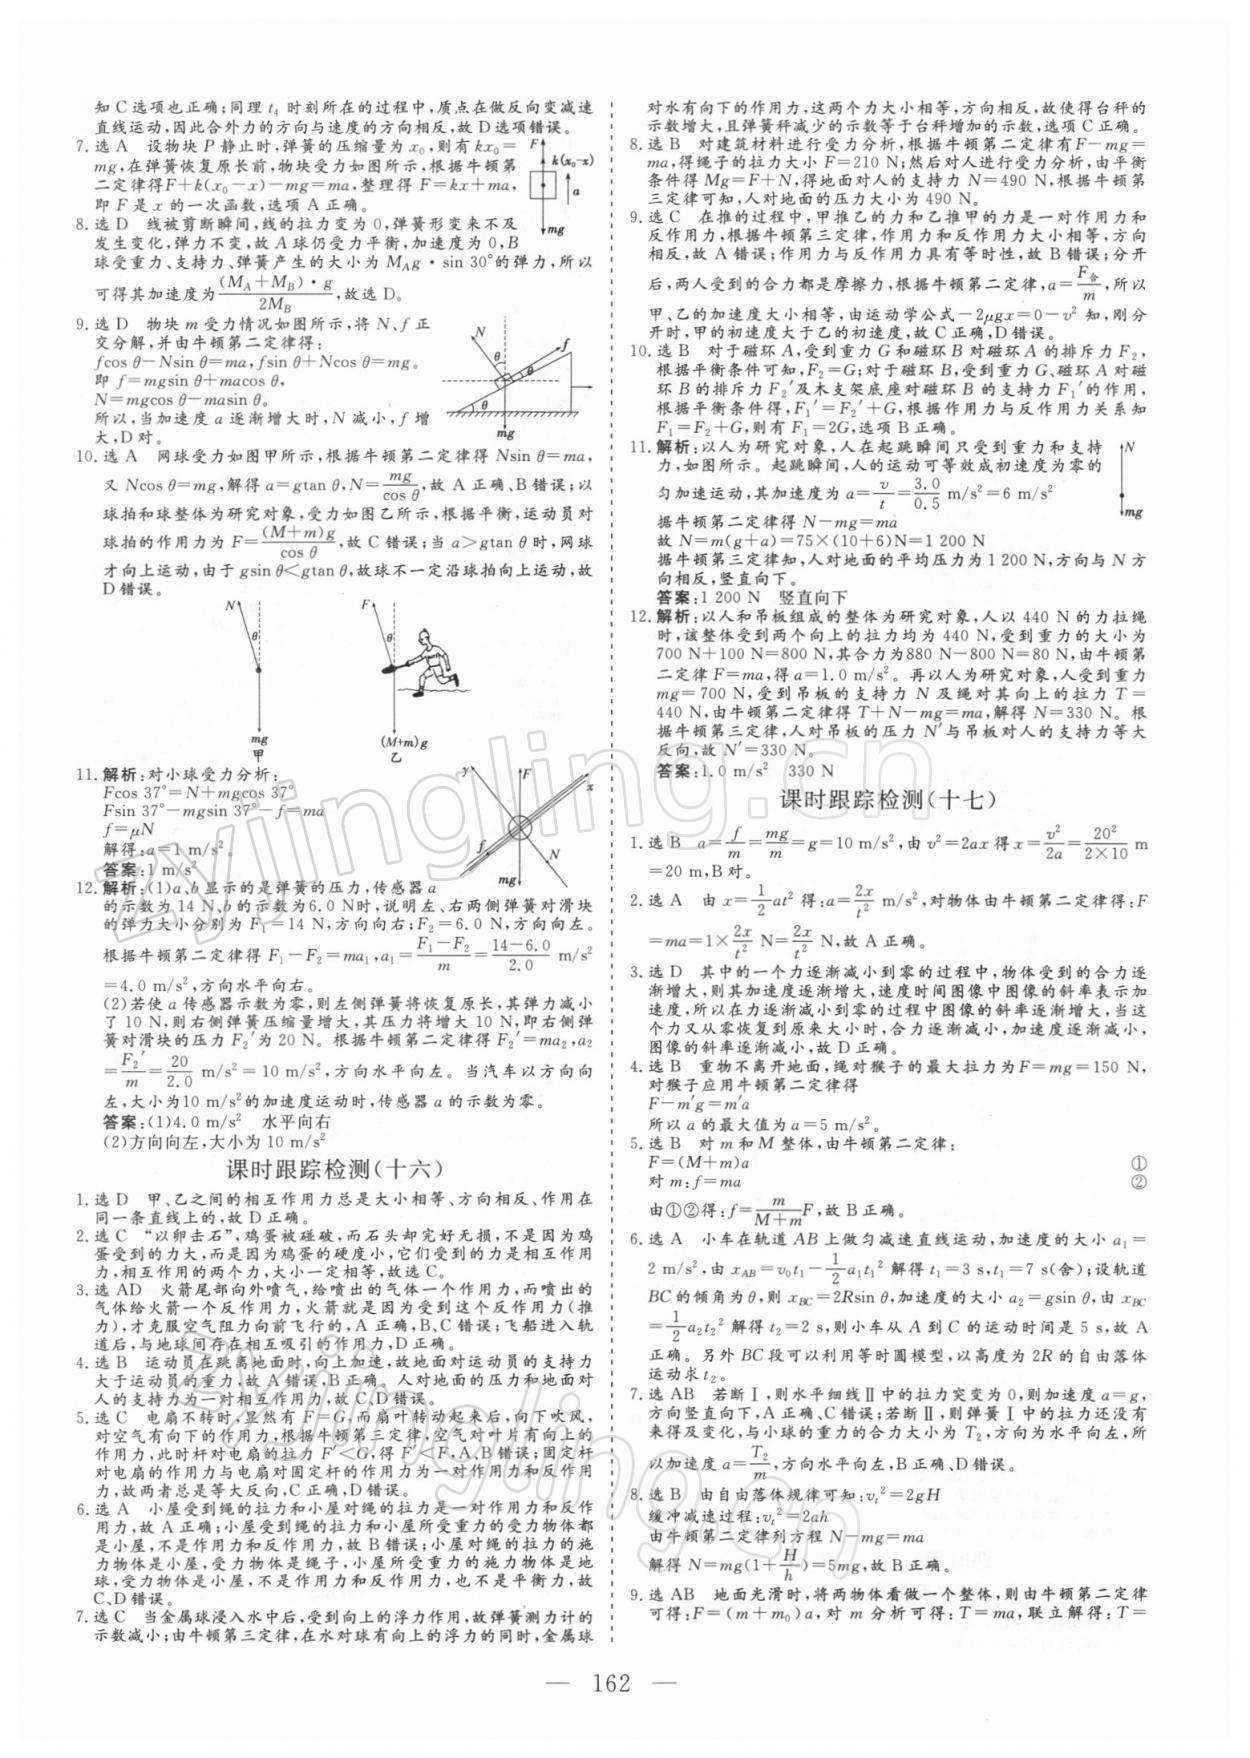 知C选项也正确;同理 t₄ 时刻所在的过程中,质点在做反向变减速
直线运动,因此合外力的方向与速度的方向相反,故D选项错误。
7.选A 设物块P静止时,弹簧的压缩量为x₀,则有kx₀=
mg,在弹簧恢复原长前,物块受力如图所示,根据牛顿第
二定律得F+k(x₀-x)-mg=ma,整理得 F=kx+ma,
即F是x的一次函数,选项A正确。
F
k(x₀-x)
a
mg
8.选D 线被剪断瞬间,线的拉力变为0,弹簧形变来不及
发生变化,弹力不变,故A球仍受力平衡,加速度为0,B
球受重力、支持力、弹簧产生的大小为 M_A g·sin 30°的弹力,所以
可得其加速度为(M_A+M_B)·g/2M_B,故选D。
9.选D 物块m受力情况如图所示,将N、f正
交分解,并由牛顿第二定律得:
fcos θ-Nsin θ=ma,fsin θ+Ncos θ=mg。
即 f=mgsin θ+macos θ,
N=mgcos θ-masin θ。
所以,当加速度a逐渐增大时,N减小,f增
大,D对。
N
θ
f
θ
θ
mg
10.选A 网球受力如图甲所示,根据牛顿第二定律得 Nsin θ=ma,
又 Ncos θ=mg,解得 a=gtan θ,N=mg/cos θ,故A正确、B错误;以
球拍和球整体为研究对象,受力如图乙所示,根据平衡,运动员对
球拍的作用力为F=(M+m)g/cos θ,故C错误;当a>gtan θ时,网球
才向上运动,由于gsin θ<gtan θ,故球不一定沿球拍向上运动,故
D错误。
N
θ
mg
甲
F
θ
(M+m)g
乙
11.解析:对小球受力分析:
Fcos 37°=N+mgcos 37°
Fsin 37°-mgsin 37°-f=ma
f=μN
解得:a=1 m/s²。
答案:1 m/s²
y
F
x
f
N
mg
12.解析:(1)a、b显示的是弹簧的压力,传感器a
的示数为14 N、b的示数为6.0 N时,说明左、右两侧弹簧对滑块
的弹力大小分别为F₁=14 N,方向向右;F₂=6.0 N,方向向左。
根据牛顿第二定律得 F₁-F₂=ma₁,a₁=(F₁-F₂)/m=(14-6.0)/2.0 m/s²
=4.0 m/s²,方向水平向右。
(2)若使a传感器示数为零,则左侧弹簧将恢复原长,其弹力减小
了10 N,则右侧弹簧压缩量增大,其压力将增大10 N,即右侧弹
簧对滑块的压力F₂′为20 N。根据牛顿第二定律得F₂′=ma₂,a₂
=F₂′/m=20/2.0 m/s²=10 m/s²,方向水平向左。当汽车以方向向
左,大小为10 m/s²的加速度运动时,传感器a的示数为零。
答案:(1)4.0 m/s² 水平向右
(2)方向向左,大小为10 m/s²
课时跟踪检测(十六)
1.选D 甲、乙之间的相互作用力总是大小相等、方向相反、作用在
同一条直线上的,故D正确。
2.选C “以卵击石”,鸡蛋被碰破,而石头却完好无损,不是因为鸡
蛋受到的力大,而是因为鸡蛋的硬度小,它们受到的力是相互作用
力,相互作用的两个力,大小一定相等,故选C。
3.选AD 火箭尾部向外喷气,给喷出的气体一个作用力,而喷出的
气体给火箭一个反作用力,火箭就是因为受到这个反作用力(推
力),才克服空气阻力向前飞行的,A正确,B、C错误;飞船进入轨
道后,与地球间存在相互吸引的作用力,D正确。
4.选B 运动员在跳离地面时,向上加速,故地面对运动员的支持力
大于运动员的重力,故A错误,B正确。人对地面的压力与地面对
人的支持力为一对相互作用力,故C、D错误。
5.选C 电扇不转时,显然有F=G,而扇叶转动起来后,向下吹风,
对空气有向下的作用力,根据牛顿第三定律,空气对叶片有向上的
作用力,此时杆对电扇的拉力F′<G,得F′<F,A、B错误;固定杆
对电扇的作用力与电扇对固定杆的作用力为一对作用力和反作用
力,故两者总是等大反向,C正确,D错误。
6.选A 小屋受到绳的拉力和小屋对绳的拉力是一对作用力和反作
用力,故A正确;小屋受到绳的拉力和小屋所受重力的受力物体都
是小屋,不是作用力和反作用力,故B错误;小屋对绳的拉力的施
力物体是小屋,受力物体是绳子,小屋所受重力的施力物体是地
球,受力物体是小屋,不是作用力和反作用力,也不是平衡力,故
C、D错误。
7.选C 当金属球浸入水中后,受到向上的浮力作用,故弹簧测力计的
示数减小;由牛顿第三定律,在水对球有向上的浮力的同时,金属球
对水有向下的作用力,这两个力大小相等,方向相反,故使得台秤的
示数增大,且弹簧秤减少的示数等于台秤增加的示数,选项C正确。
8.选B 对建筑材料进行受力分析,根据牛顿第二定律有F-mg=
ma,得绳子的拉力大小F=210 N;然后对人进行受力分析,由平衡
条件得Mg=F+N,得地面对人的支持力N=490 N,根据牛顿第
三定律可知,人对地面的压力大小为490 N。
9.选C 在推的过程中,甲推乙的力和乙推甲的力是一对作用力和
反作用力,根据牛顿第三定律,作用力和反作用力大小相等,方向
相反,故A错误;作用力与反作用力具有等时性,故B错误;分开
后,两人受到的合力都是摩擦力,根据牛顿第二定律,a=F合/m,所以
甲、乙的加速度大小相等,由运动学公式-2μgx=0-v²知,刚分
开时,甲的初速度大于乙的初速度,故C正确,D错误。
10.选B 对于磁环A,受到重力G和磁环B对磁环A的排斥力F₂,
根据平衡条件可知,F₂=G;对于磁环B,受到重力G、磁环A对磁
环B的排斥力F₂′及木支架底座对磁环B的支持力F₁′的作用,
根据平衡条件得,F₁′=F₂′+G,根据作用力与反作用力关系知
F₁=F₂+G,则有F₁=2G,选项B正确。
11.解析:以人为研究对象,人在起跳瞬间只受到重力和支持
力,如图所示。起跳瞬间,人的运动可等效成初速度为零的
匀加速运动,其加速度为a=v/t=3.0/0.5 m/s²=6 m/s²
据牛顿第二定律得 N-mg=ma
故 N=m(g+a)=75×(10+6)N=1 200 N
据牛顿第三定律知,人对地面的平均压力为1 200 N,方向与N方
向相反,竖直向下。
答案:1 200 N 竖直向下
N
mg
12.解析:以人和吊板组成的整体为研究对象,人以440 N的力拉绳
时,该整体受到两个向上的拉力均为440 N,受到重力的大小为
700 N+100 N=800 N,其合力为880 N-800 N=80 N,由牛顿第
二定律F=ma,得a=1.0 m/s²。再以人为研究对象,人受到重力
mg=700 N,受到吊板的支持力N及绳对其向上的拉力T=
440 N,由牛顿第二定律得T+N-mg=ma,解得N=330 N。根
据牛顿第三定律,人对吊板的压力N′与吊板对人的支持力等大
反向,故N′=330 N。
答案:1.0 m/s² 330 N
课时跟踪检测(十七)
1.选B a=f/m=mg/m=g=10 m/s²,由v²=2ax得x=v²/2a=20²/(2×10) m
=20 m,B对。
2.选A 由x=1/2at²得:a=2x/t² m/s²,对物体由牛顿第二定律得:F
=ma=1×2x/t² N=2x/t² N,故A正确。
3.选D 其中的一个力逐渐减小到零的过程中,物体受到的合力逐
渐增大,则其加速度逐渐增大,速度时间图像中图像的斜率表示加
速度,所以在力逐渐减小到零的过程中图像的斜率逐渐增大,当这
个力又从零恢复到原来大小时,合力逐渐减小,加速度逐渐减小,
图像的斜率逐渐减小,故D正确。
4.选B 重物不离开地面,绳对猴子的最大拉力为F=mg=150 N,
对猴子应用牛顿第二定律得
F-m′g=m′a
所以a的最大值为a=5 m/s²。
5.选B 对m和M整体,由牛顿第二定律:
F=(M+m)a ①
对m:f=ma ②
由①②得:f=m/(M+m)F,故B正确。
6.选A 小车在轨道AB上做匀减速直线运动,加速度的大小a₁=
2 m/s²,由x_AB=v₀t₁-1/2a₁t₁²解得t₁=3 s,t₁=7 s(舍);设轨道
BC的倾角为θ,则x_BC=2Rsin θ,加速度的大小a₂=gsin θ,由x_BC
=1/2a₂t₂²解得t₂=2 s,则小车从A到C的运动时间是5 s,故A
正确。另外BC段可以利用等时圆模型,以高度为2R的自由落体
运动求t₂。
7.选AB 若断Ⅰ,则水平细线Ⅱ中的拉力突变为0,则加速度a=g,
方向竖直向下,A正确、C错误;若断Ⅱ,则弹簧Ⅰ中的拉力还没有
来得及变化,与小球的重力的合力大小为T₂,方向为水平向左,所
以加速度a=T₂/m,方向水平向左,B正确、D错误。
8.选B 由自由落体规律可知:v_t²=2gH
缓冲减速过程:v_t²=2ah
由牛顿第二定律列方程 N-mg=ma
解得 N=mg(1+H/h)=5mg,故B正确。
9.选AB 地面光滑时,将两物体看做一个整体,则由牛顿第二定律
可得:F=(m+m₀)a,对m分析可得:T=ma,联立解得:T=
— 162 —
zyjingling.cn
zyjingling.cn